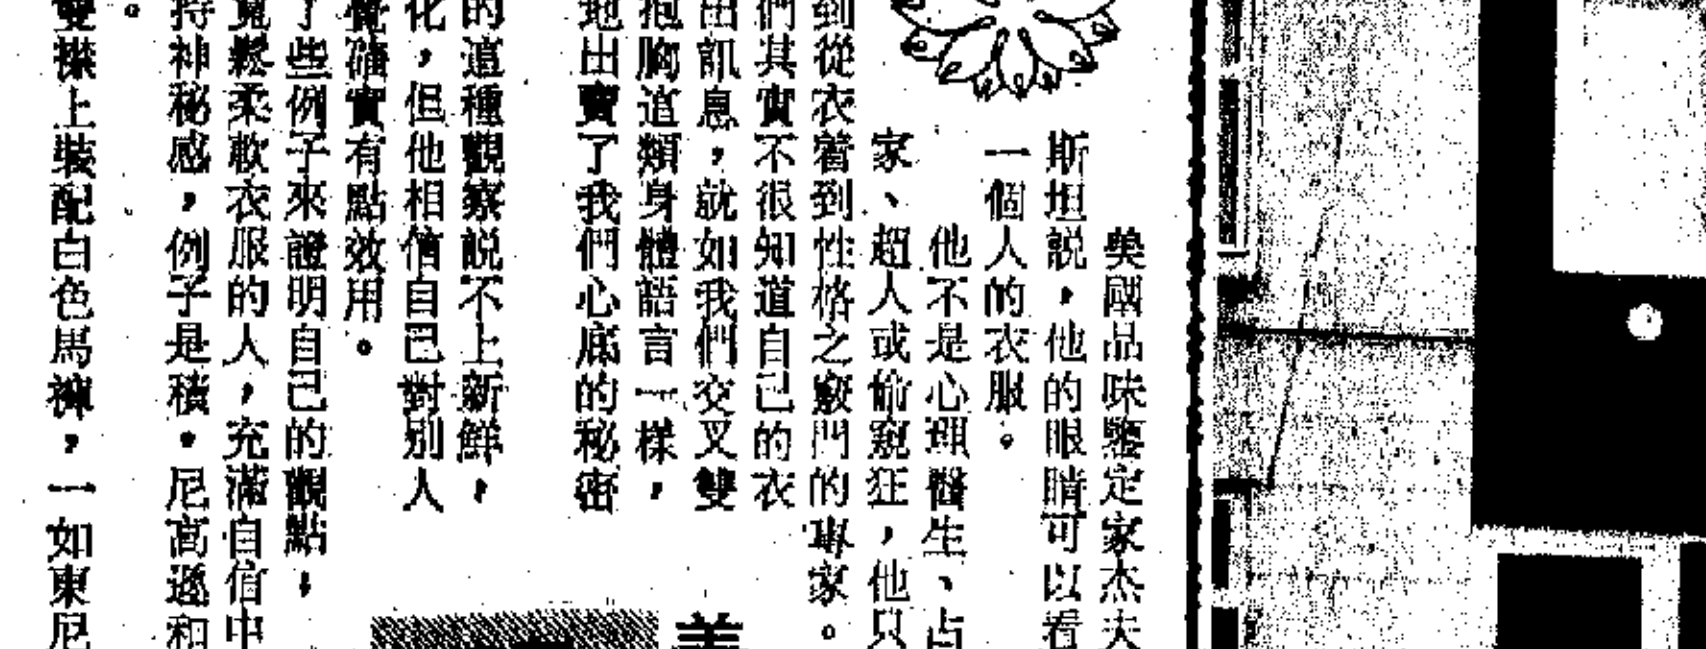 美國品味鑒定家杰夫
斯坦説，他的眼睛可以看
一個人的衣服。
他不是心理醫生、占
家、超人或偷窺狂，他只
到從衣着到性格之竅門的專家。
們其實不很知道自己的衣
出訊息，就如我們交叉雙
抱胸這類身體語言一樣，
地出賣了我們心底的秘密
的這種觀察説不上新鮮，
化，但他相信自己對別人
覺確實有點效用。
了些例子來證明自己的觀點，
寬鬆柔軟衣服的人，充滿自信中
持神秘感，例子是積・尼高遜和
。
雙襟上裝配白色馬褲，一如東尼
美